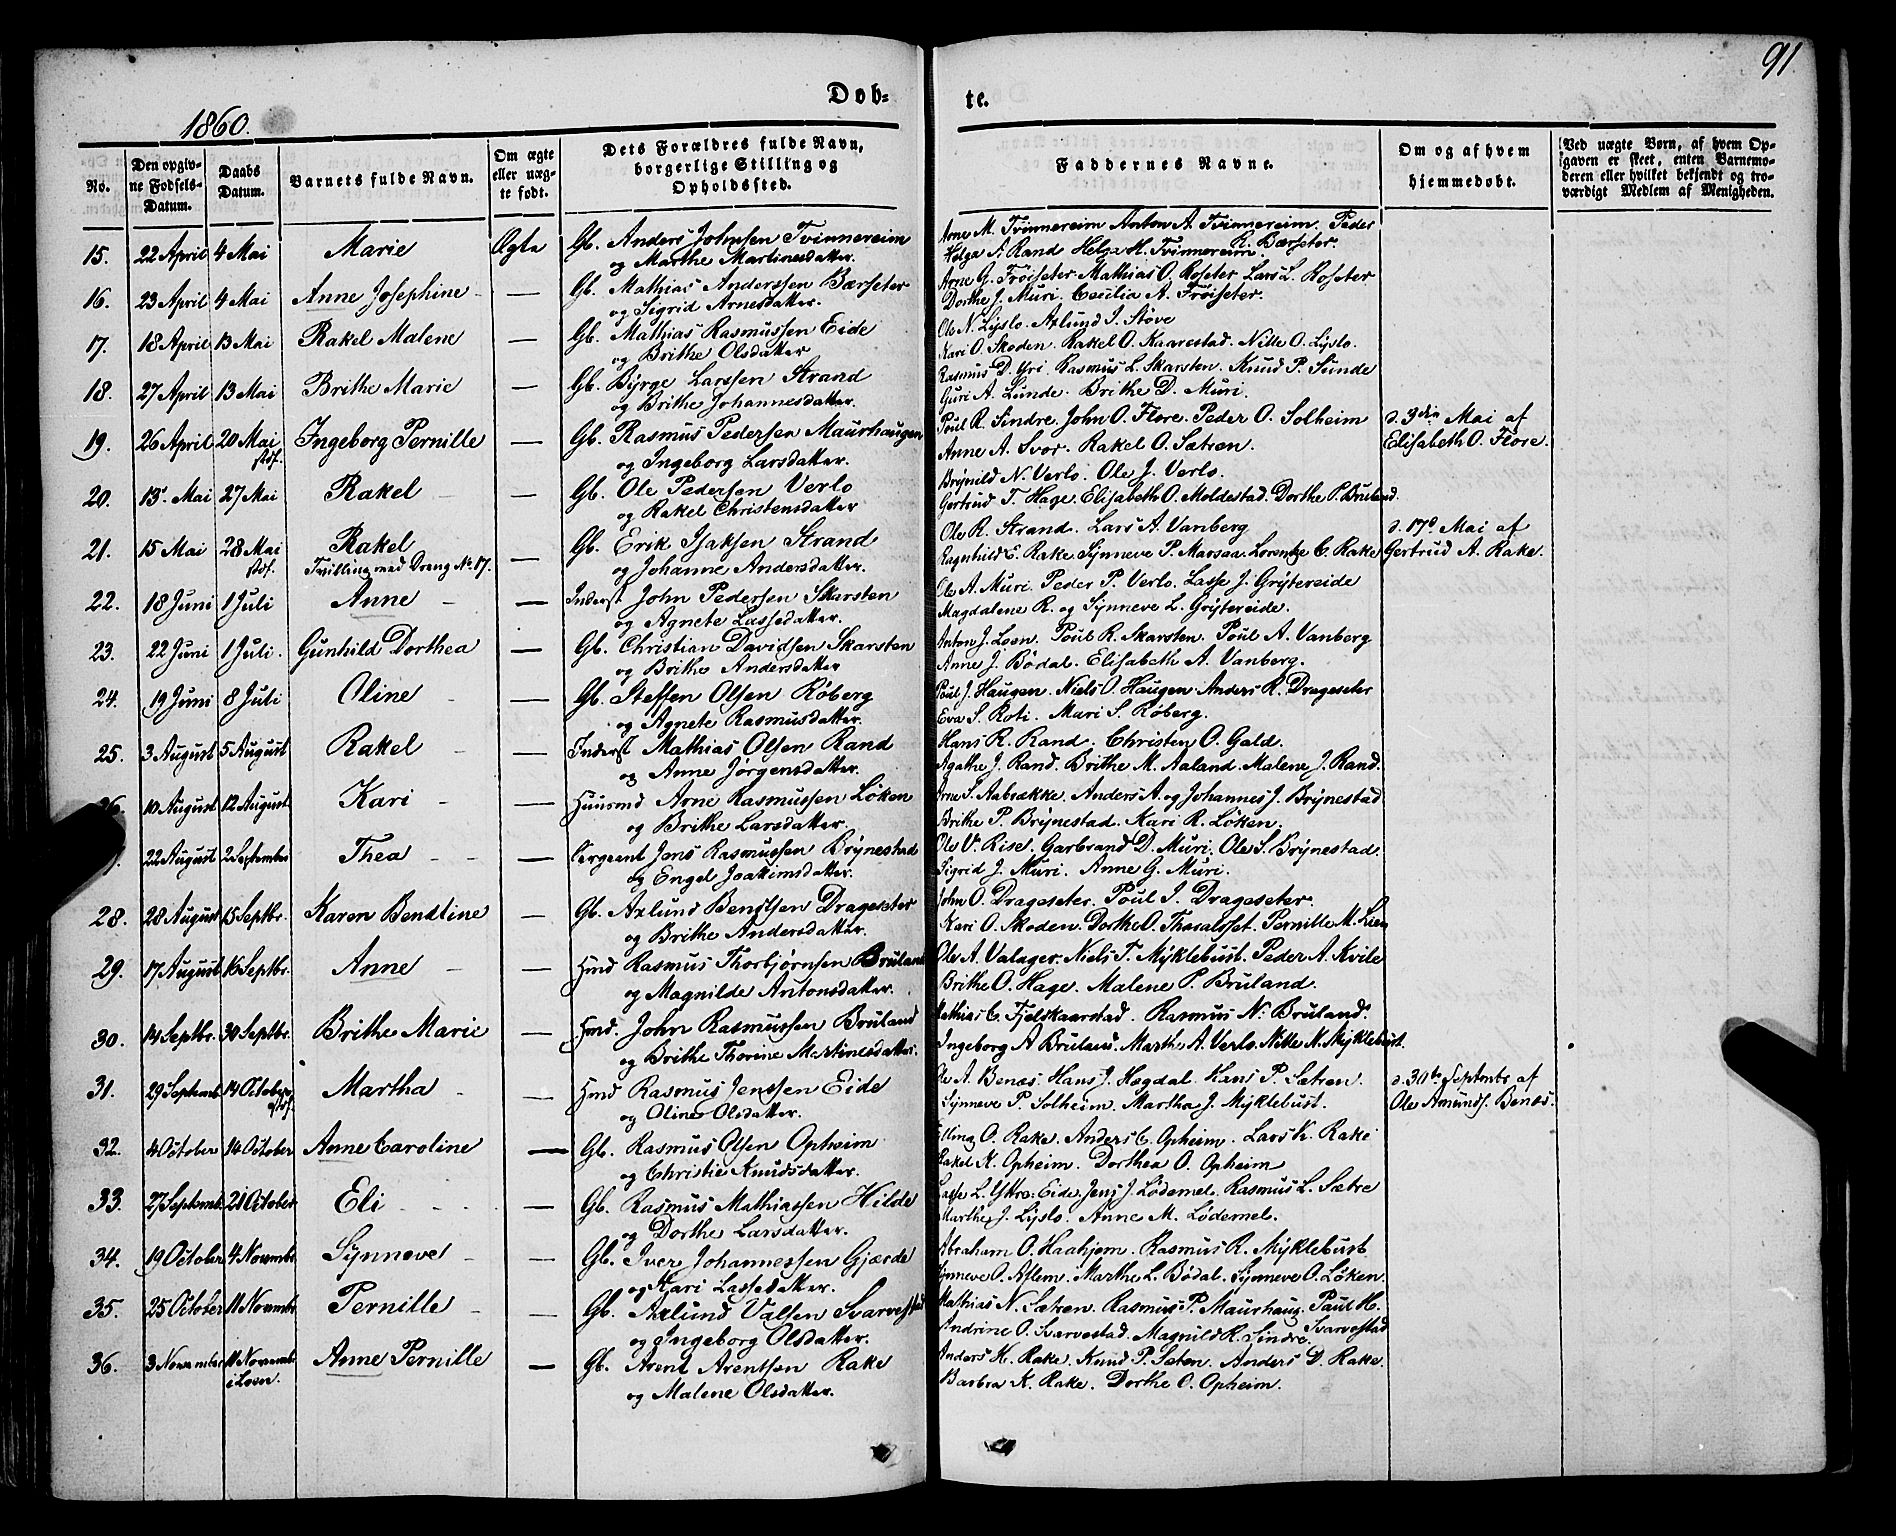 91.
Døb=
te.
1860.
No.
Den opgiv-
ne Fødsels-
Datum.
Daabs
Datum.
Barnets fulde Navn.
Om ægte
eller uæg-
te født.
Dets Forældres fulde Navn,
borgerlige Stilling og
Opholdssted.
Faddernes Navne.
Om og af hvem
hjemmedøbt.
Ved uægte Børn, af hvem Op-
gaven er skeet, enten Barnemo-
deren eller hvilket bekjendt og tro-
værdigt Medlem af Menigheden.
15. 22 April 4 Mai Marie Ægte Gb. Anders Johnsen Tvinnereim
og Marthe Martinesdatter.
Arne M. Tvinnereim Anton A. Tvinnereim. Peder
R. Bærseter.
Helga A. Rand Helga H. Tvinnereim.
16. 23 April 4 Mai Anne Josephine — Gb. Mathias Anderssen Bærseter
og Sigrid Arnesdatter.
Arne G. Frøiseter. Mathias O. Roseter Lars L. Roseter
Dorthe J. Muri. Cecilia A. Frøiseter.
17. 18 April 13 Mai Rakel Malene — Gb. Mathias Rasmussen Eide
og Brithe Olsdatter
Ole N. Lyslo. Axlund J. Støve
Kari O. Skoden. Rakel O. Kaarestad. Nille O. Lyslo.
18. 27 April 13 Mai Brithe Marie — Gb. Byrge Larssen Strand
og Brithe Johannesdatter.
Rasmus D. Yri Rasmus L. Skarsten. Knud P. Sunde
Guri A. Lunde. Brithe D. Muri.
19. 26 April 20 Mai Ingeborg Pernille — Gb. Rasmus Pedersen Maurhaugen
stdf.
og Ingeborg Larsdatter.
Poul R. Sindre. John O. Flore. Peder O. Solheim
Anne A. Svor. Rakel O. Sætren.
d. 3die Mai af
Elisabeth O. Flore.
20. 13 Mai 27 Mai Rakel — Gb. Ole Pedersen Verlo
og Rakel Christensdatter
Brynild N. Verlo. Ole J. Verlo.
Gertrud T. Hage. Elisabeth O. Moldestad. Dorthe P. Bruland.
21. 15 Mai 28 Mai Rakel — Gb. Erik Isaksen Strand
stdf.
Tvilling med Dreng No. 17.
og Johanne Andersdatter.
Ole R. Strand. Lars A. Vanberg
Ragnhild E. Rake Synneve P. Marsaa. Lorentze C. Rake
d. 17d Mai af
Gertrud A. Rake.
22. 18 Juni 1 Juli Anne — Inderst John Pedersen Skarsten
og Agnete Lassedatter.
Ole A. Muri. Peder P. Verlo. Lasse J. Grytereide
Magdalene R. og Synneve L. Grytereide.
23. 22 Juni 1 Juli. Gunhild Dorthea — Gb. Christian Davidsen Skarsten
og Brithe Andersdatter
Anton J. Loen. Poul R. Skarsten. Poul A. Vanberg
Anne J. Bødal. Elisabeth A. Vanberg.
24. 19 Juni 8 Juli Oline — Gb. Steffen Olsen Røberg
og Agnete Rasmusdatter.
Poul J. Haugen. Niels O. Haugen. Anders R. Drageseter
Eva S. Roti. Mari S. Røberg.
25. 3 August 5 August Rakel — Inderst Mathias Olsen Rand
og Anne Jørgensdatter.
Hans R. Rand. Christen O. Gald.
Agathe J. Rand. Brithe M. Aaland. Malene J. Rand.
10 August 12 August Kari — Huusmd Arne Rasmussen Løken
og Brithe Larsdatter.
Arne S. Aabrække. Anders A. og Johannes J. Brynestad
Brithe P. Brynestad. Kari R. Løken.
22 August 2 September Thea — Sergeant Jens Rasmussen Brynestad
og Engel Joakimsdatter.
Ole V. Rise. Garbrand D. Muri. Ole S. Brynestad.
Sigrid J. Muri. Anne G. Muri.
28. 28 August 15 Septbr. Karen Bendtine — Gb. Axlund Bendtsen Drageseter
og Brithe Andersdatter.
John O. Drageseter. Poul J. Drageseter.
Kari O. Skoden. Dorthe O. Tharaldset. Pernille M. Lien
29. 17 August 16 Septbr. Anne — Hmd Rasmus Thorbjørnsen Bruland
og Magnilde Antonsdatter.
Ole A. Valager. Niels T. Myklebust. Peder A. Kvile
Brithe O. Hage. Malene P. Bruland.
30. 14 Septbr. 30 Septbr. Brithe Marie — Hmd. John Rasmussen Bruland
og Brithe Thorine Martinesdatter.
Mathias C. Fjelskaarstad. Rasmus N. Bruland.
Ingeborg A Bruland. Marthe A. Verlo. Nille N. Myklebust.
31. 29 Septemb. 14 October Martha — Hmd Rasmus Jenssen Eide
stdf.
og Oline Olsdatter.
Ole A. Benæs. Hans J. Hogdal. Hans P. Sætren.
Synneve P. Solheim. Martha J. Myklebust.
d. 30te Septembr af
Ole Amunds. Benæs.
32. 4 October 14 October Anne Caroline — Gb. Rasmus Olsen Opheim
og Christie Knudsdatter.
Elling O. Rake. Anders C. Opheim. Lars K. Rake
Rakel K. Opheim. Dorthea O. Opheim
33. 27 Septemb. 21 October Eli — Gb. Rasmus Mathiassen Hilde
og Dorthe Larsdatter.
Lasse L. Yttre-Eide. Jens J. Lødemel. Rasmus L. Sætre
Marthe J. Lyslo. Anne M. Lødemel.
34. 19 October 4 Novembr. Synneve — Gb. Iver Johannessen Gjærde
og Kari Lassedatter.
Abraham O. Haahjem. Rasmus R. Myklebust
Synneve O. Aflem. Marthe L. Bødal. Synneve O. Løken.
35. 25 October 11 Novembr. Pernille — Gb. Axlund Valsen Svarvestad
og Ingeborg Olsdatter.
Mathias N. Sætren. Rasmus P. Maurhaug. Paul H.
Svarvestad
Andrine O. Svarvestad. Magnild R. Sindre.
36. 3 November 11 Novemb. Anne Pernille — Gb. Arent Arentsen Rake
i Loen.
og Malene Olsdatter.
Anders H. Rake. Knud P. Sæten. Anders D. Rake.
Barbra K. Rake. Dorthe O. Opheim.